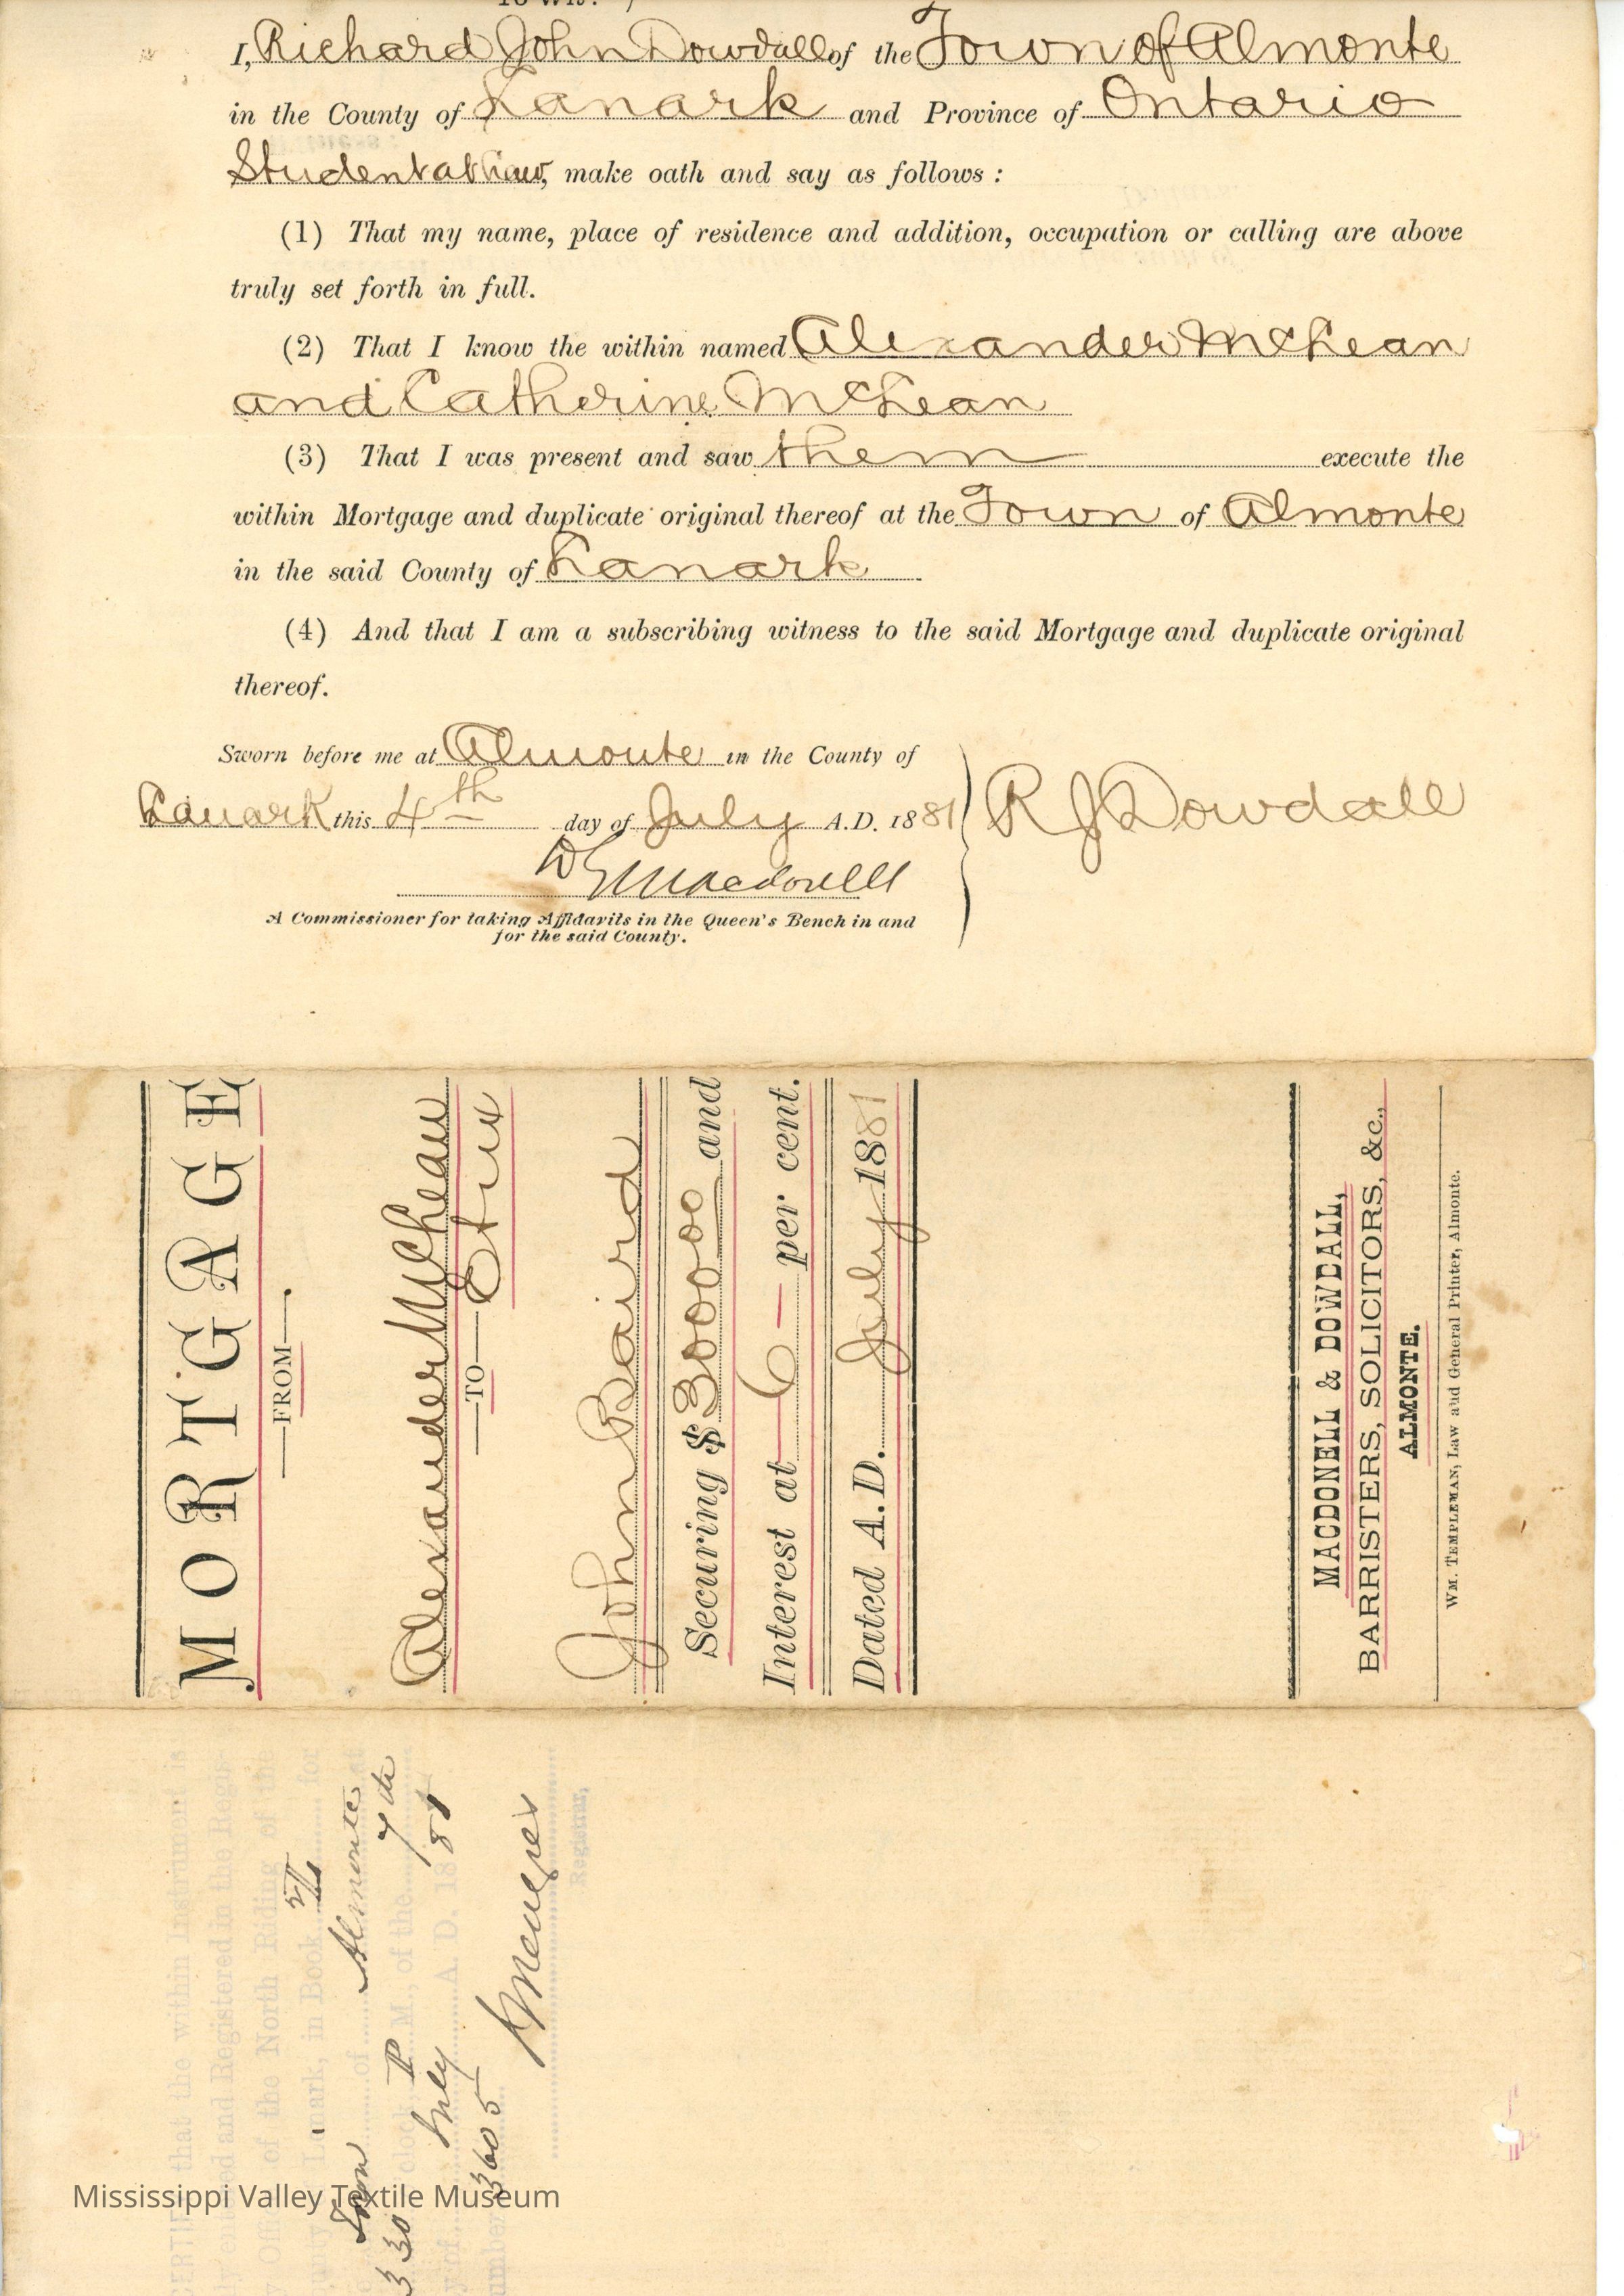 To Wit: )
I, Richard John Dowdall of the Town of Almonte
in the County of Lanark and Province of Ontario
Student at Law, make oath and say as follows :
(1) That my name, place of residence and addition, occupation or calling are above
truly set forth in full.
(2) That I know the within named Alexander McLean
and Catherine McLean
(3) That I was present and saw them execute the
within Mortgage and duplicate original thereof at the Town of Almonte
in the said County of Lanark
(4) And that I am a subscribing witness to the said Mortgage and duplicate original
thereof.
Sworn before me at Almonte in the County of
Lanark this 4th day of July A.D. 1881
R J Dowdall
Macdonell
A Commissioner for taking Affidavits in the Queen's Bench in and
for the said County.
MORTGAGE
FROM
Alexander McLean
Et ux
TO
John Baird
Securing $3000.00 and
Interest at 6 per cent.
Dated A.D. July 1881
MACDONELL & DOWDALL,
BARRISTERS, SOLICITORS, &c.,
ALMONTE.
WM. TEMPLEMAN, Law and General Printer, Almonte.
that the within Instrument is
and Registered in the Regis-
of the North Riding of the
in Book for
Town of Almonte at
3 30 o'clock P. M., of the 7th
of July A. D. 1881
3605
Registrar,
Mississippi Valley Textile Museum